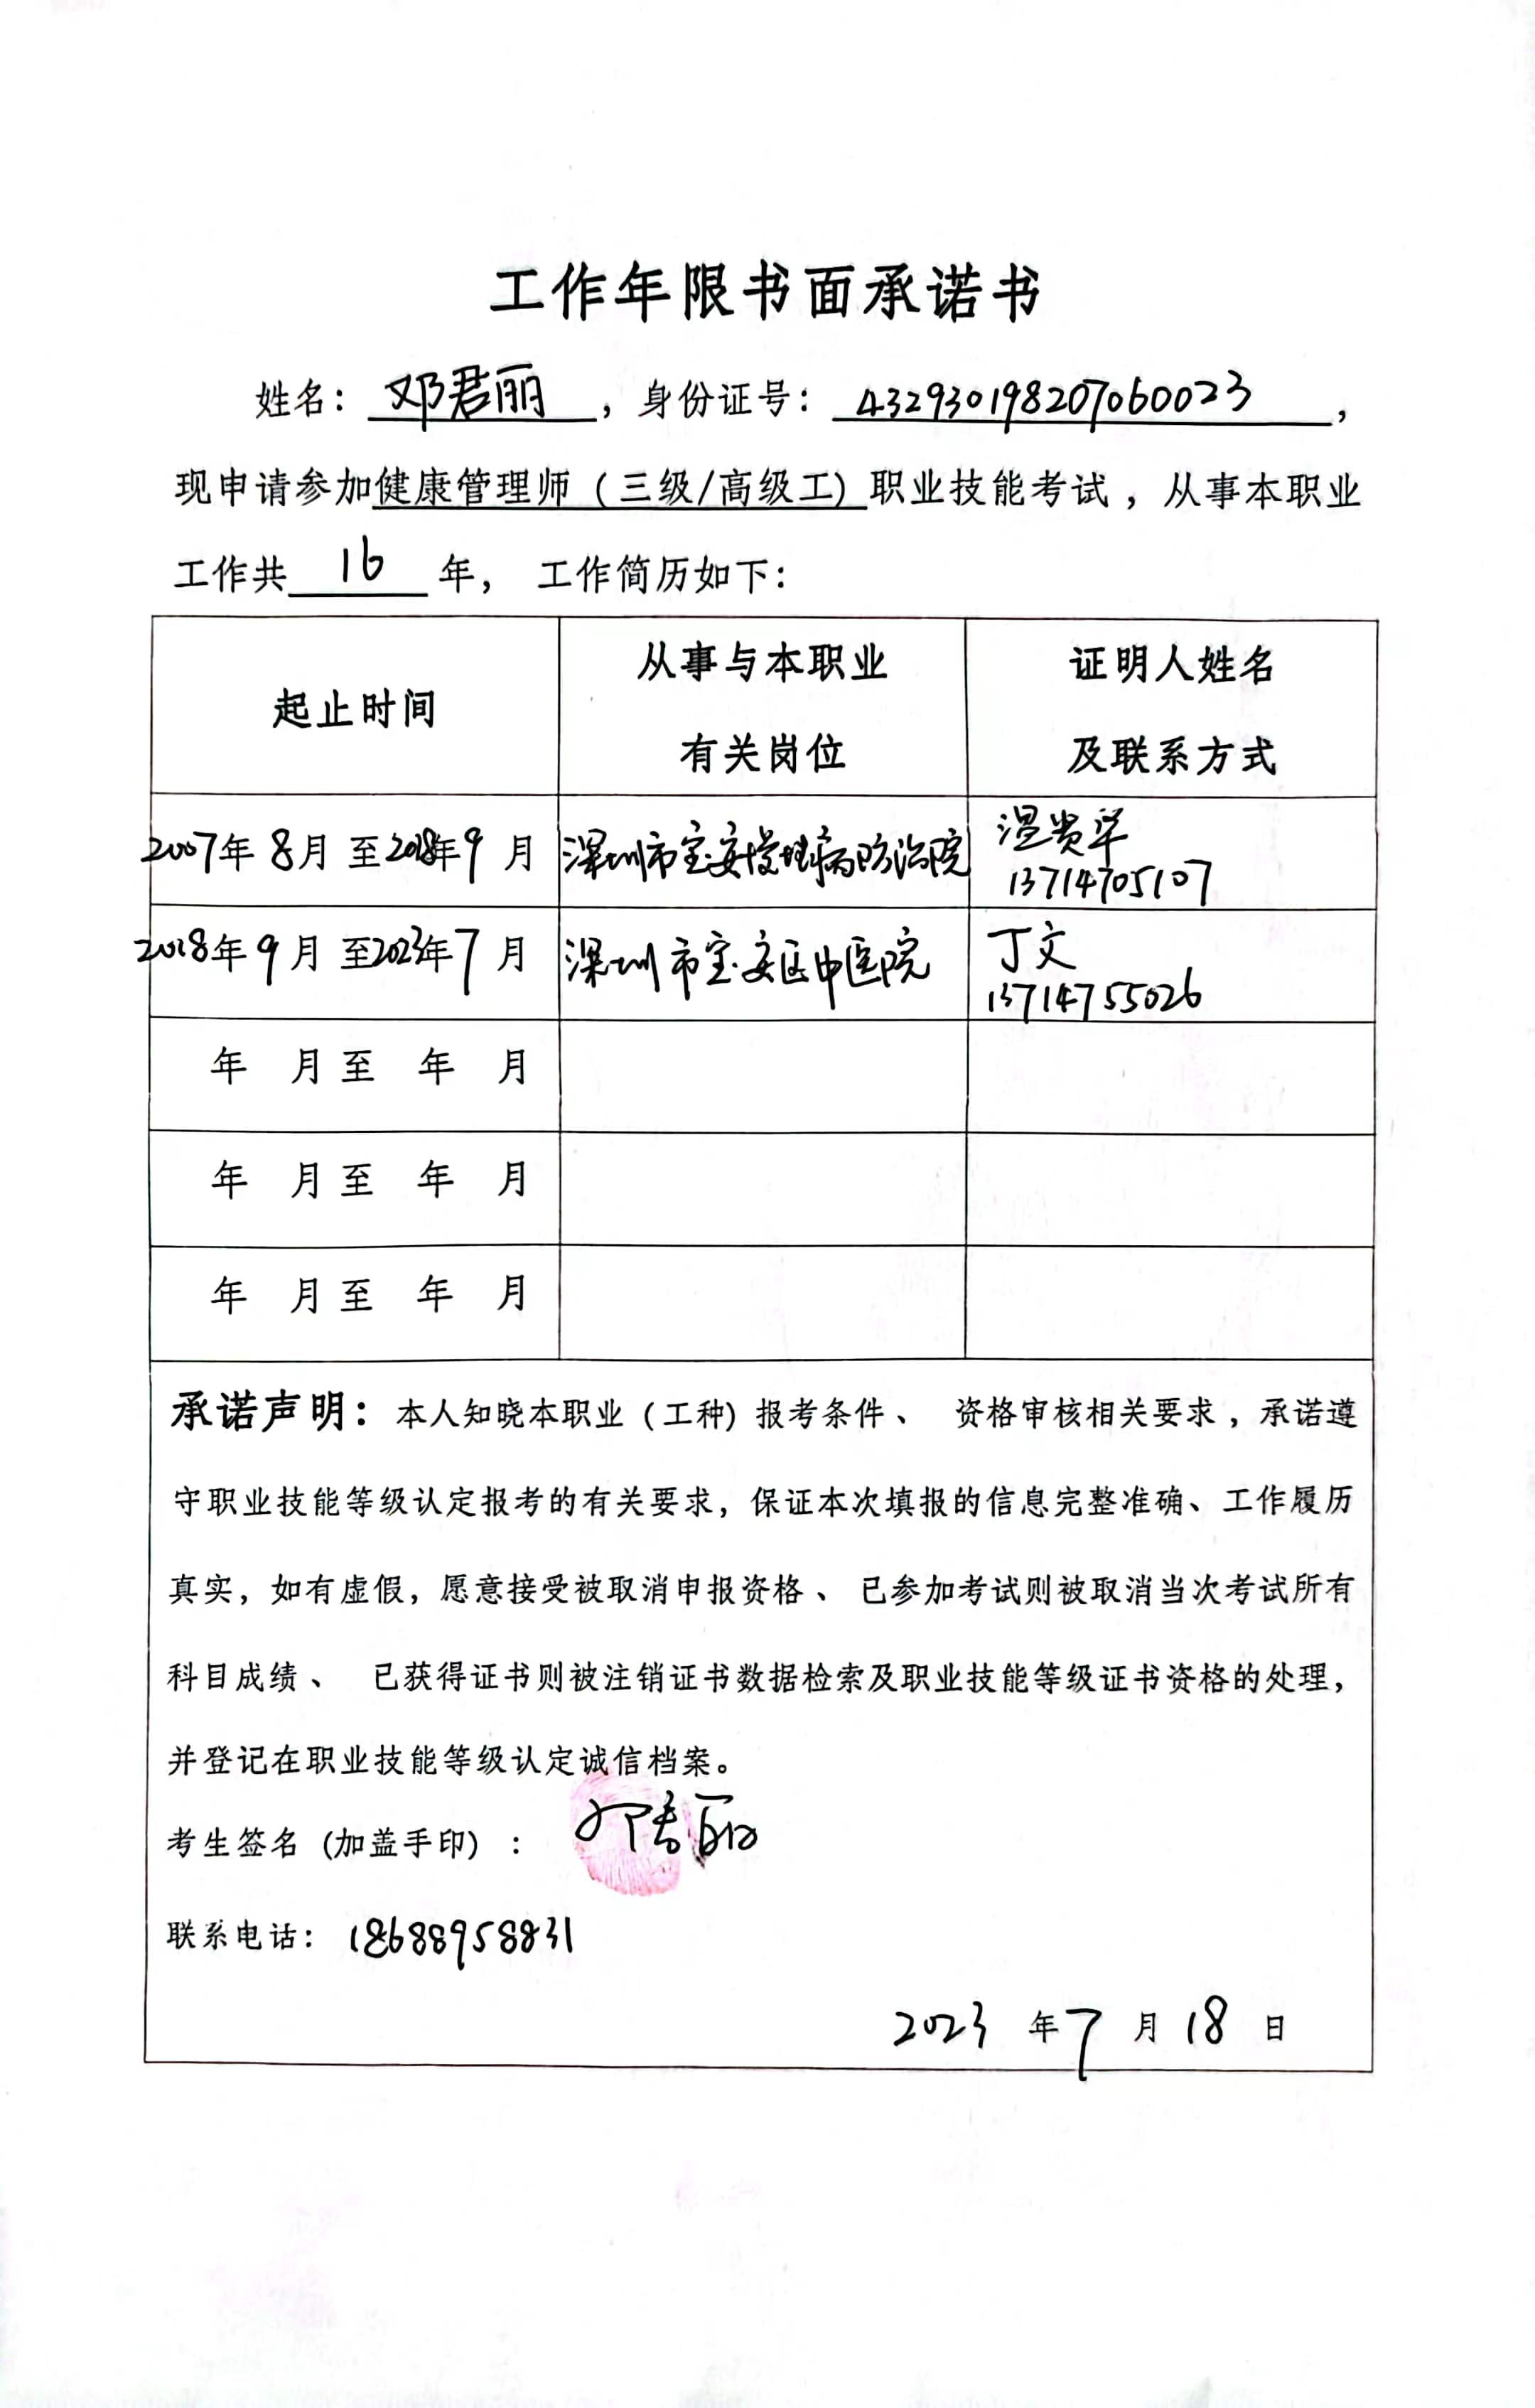 工作年限书面承诺书
姓名：邓君丽，身份证号：432930198207060023，
现申请参加健康管理师（三级/高级工）职业技能考试，从事本职业
工作共 16 年， 工作简历如下：
起止时间
从事与本职业
有关岗位
证明人姓名
及联系方式
2007年8月至2018年9月 深圳市宝安慢性病防治院 温贵华
13714705107
2018年9月至2023年7月 深圳市宝安区中医院 丁文
13714755026
年 月至 年 月
年 月至 年 月
年 月至 年 月
承诺声明：本人知晓本职业（工种）报考条件、 资格审核相关要求，承诺遵
守职业技能等级认定报考的有关要求，保证本次填报的信息完整准确、工作履历
真实，如有虚假，愿意接受被取消申报资格、 已参加考试则被取消当次考试所有
科目成绩、 已获得证书则被注销证书数据检索及职业技能等级证书资格的处理，
并登记在职业技能等级认定诚信档案。
考生签名（加盖手印）： 邓君丽
联系电话：18688958831
2023 年 7 月 18 日